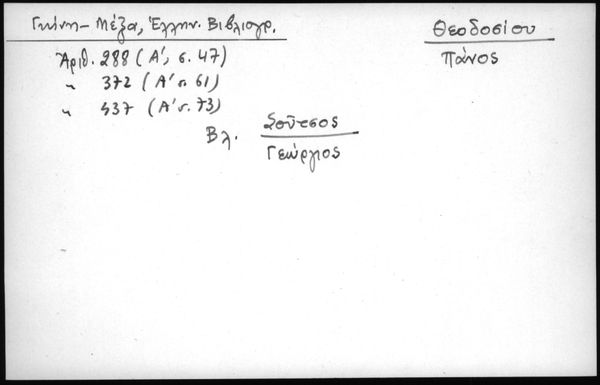 Γκίνη - Μέξα, Ἑλλην. Βιβλιογρ.
Θεοδοσίου
Πάνος
Ἀριθ. 288 (Α', σ. 47)
" 372 (Α' σ. 61)
" 437 (Α' σ. 73)
Βλ. Σοῦτσος
Γεώργιος